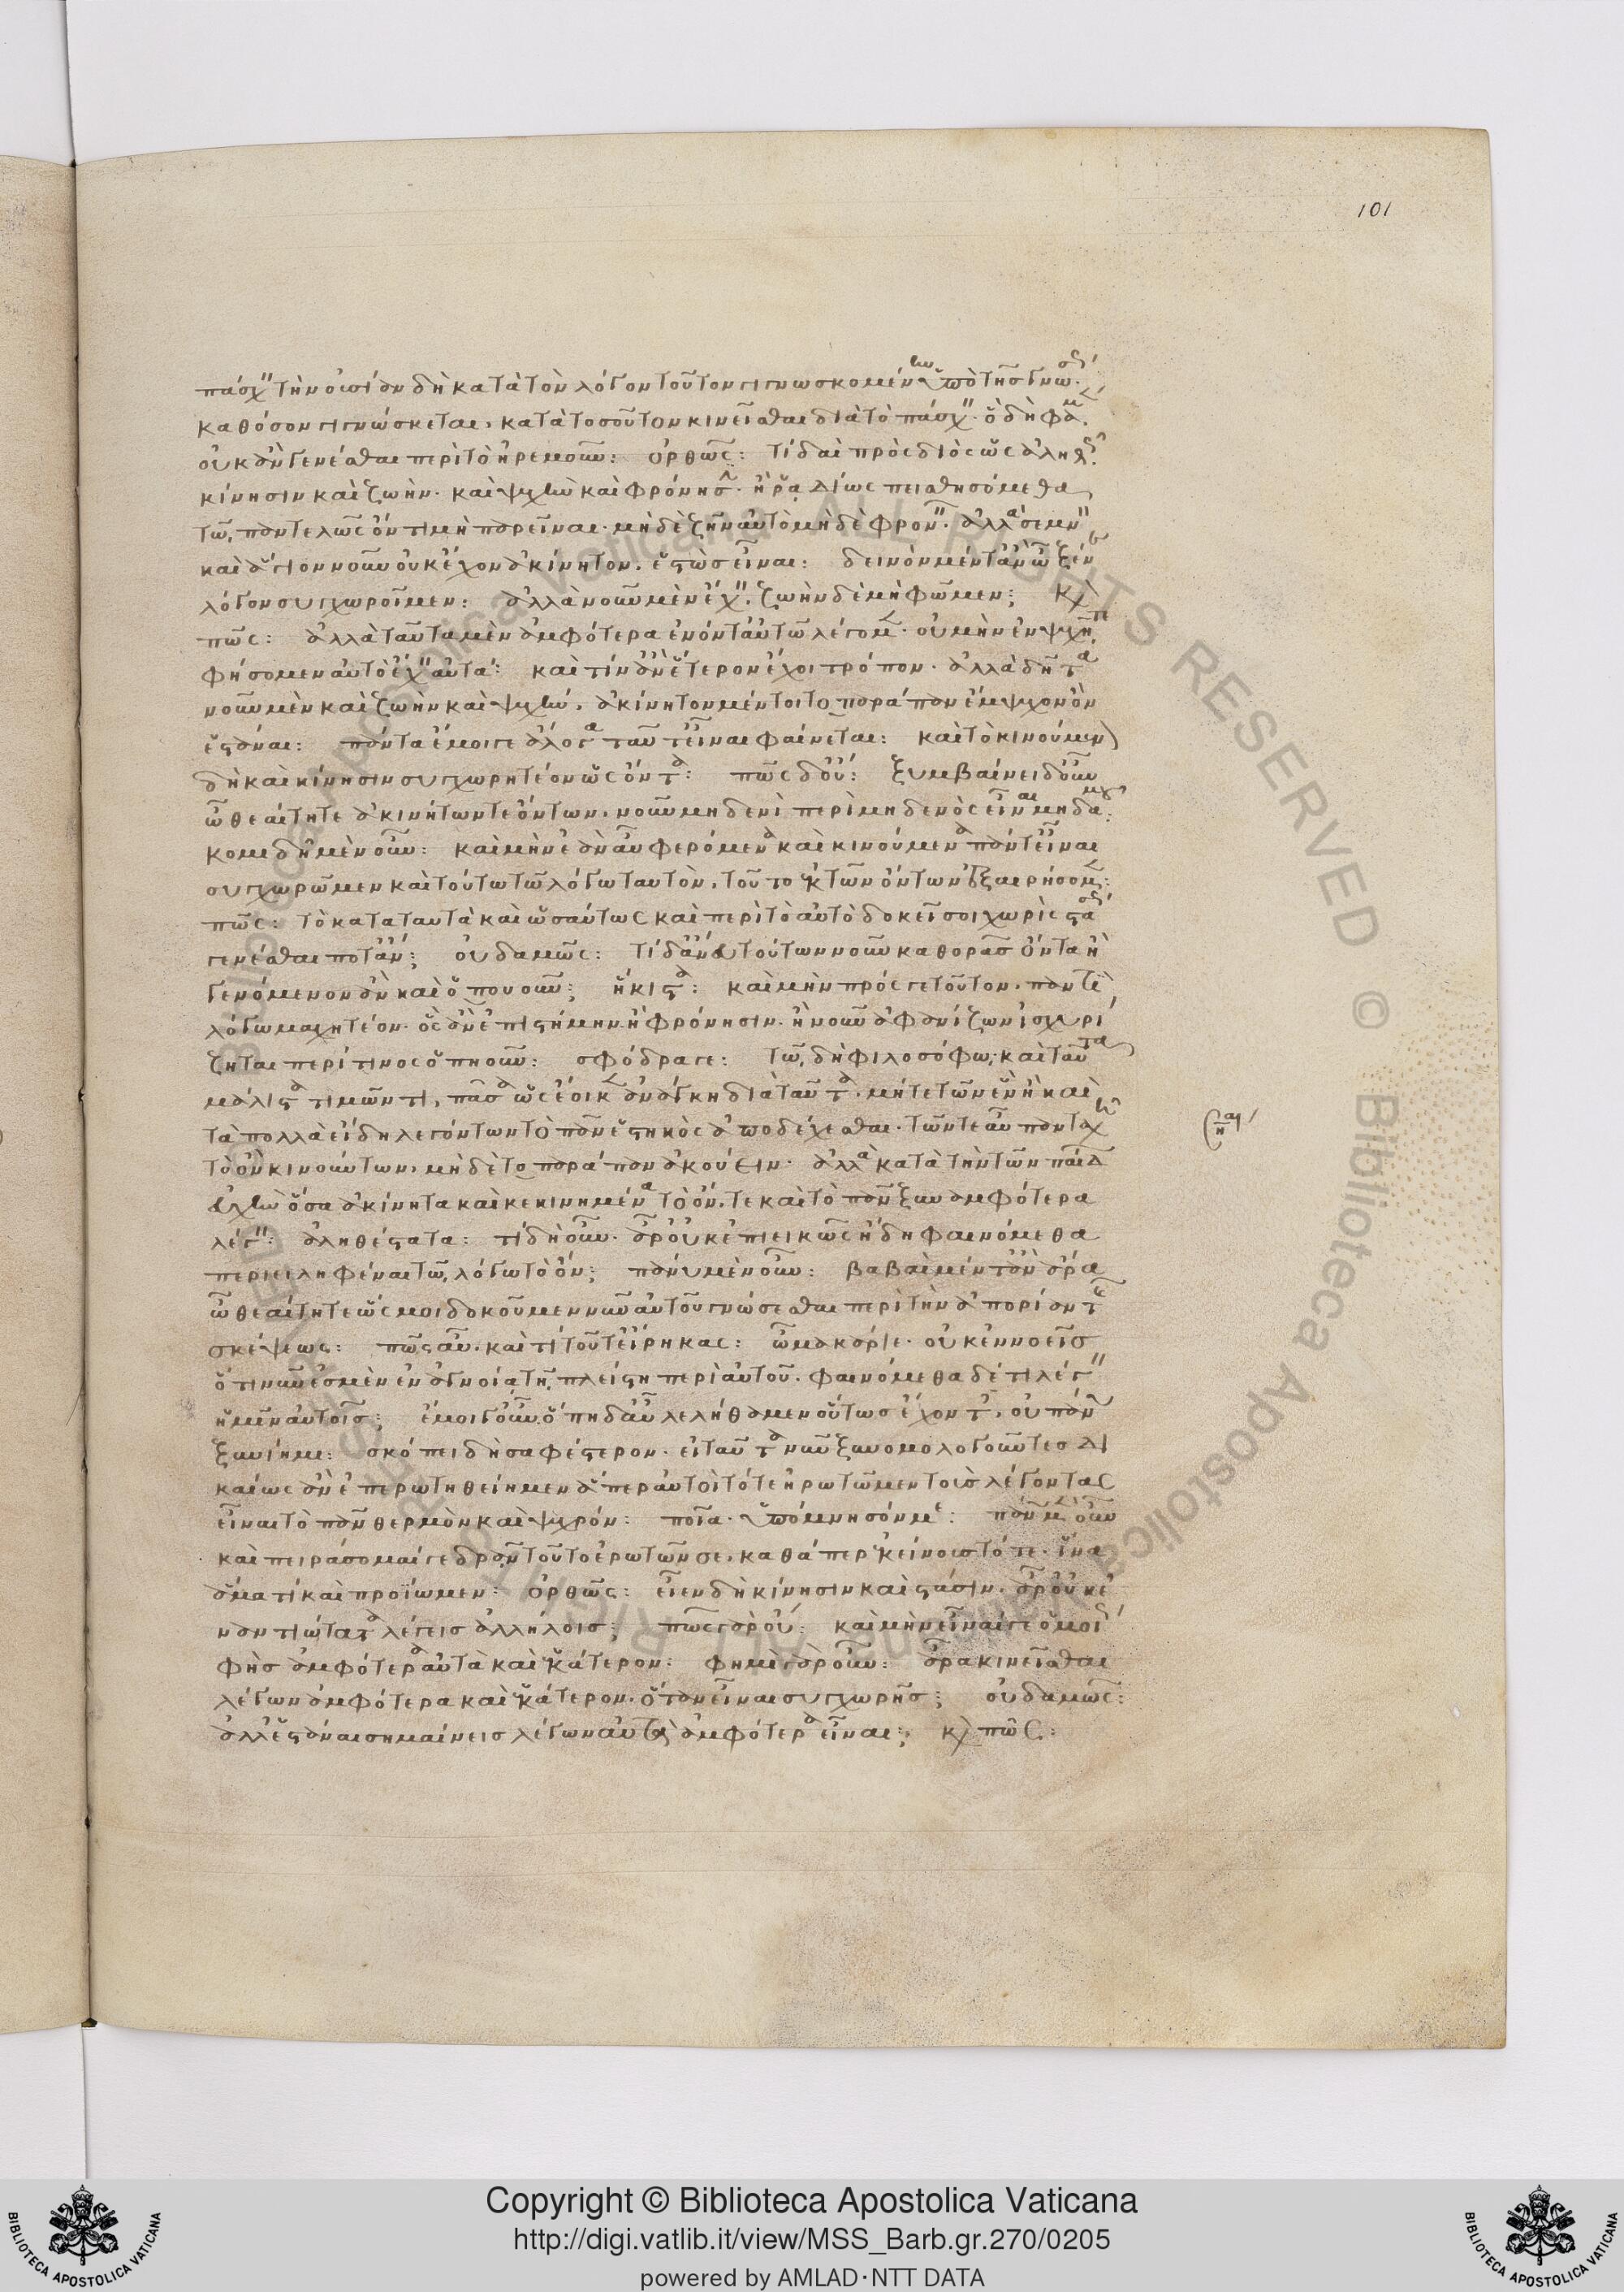 101
πάσχειν τὴν οὐσίαν δὴ κατὰ τὸν λόγον τοῦτον γιγνωσκομένην ὑπὸ τῆς γνώσεως.
καθόσον γιγνώσκεται, κατὰ τοσοῦτον κινεῖσθαι διὰ τὸ πάσχειν. ὃ δή φαμεν.
οὐκ ἂν γενέσθαι περὶ τὸ ἠρεμοῦν: ὀρθῶς: τί δαὶ πρὸς διός ὡς ἀληθῶς.
κίνησιν καὶ ζωὴν. καὶ ψυχὴν καὶ φρόνησιν. ἦ ῥαδίως πεισθησόμεθα
τῷ παντελῶς ὄντι μὴ παρεῖναι. μηδὲ ζῆν αὐτὸ μηδὲ φρονεῖν. ἀλλὰ σεμνὸν
καὶ ἅγιον νοῦν οὐκ ἔχον ἀκίνητον. ἑστὼς εἶναι: δεινὸν μέντ' ἂν ὦ ξένε
λόγον συγχωροῖμεν: ἀλλὰ νοῦν μὲν ἔχειν. ζωὴν δὲ μὴ φῶμεν; καὶ
πῶς: ἀλλὰ ταῦτα μὲν ἀμφότερα ἐνόντ' αὐτῷ λέγομεν. οὐ μὴν ἐν ψυχῇ γε
φήσομεν αὐτὸ ἔχειν αὐτά: καὶ τίν' ἂν ἕτερον ἔχοι τρόπον. ἀλλὰ δῆτα
νοῦν μὲν καὶ ζωὴν καὶ ψυχήν. ἀκίνητον μέντοι τὸ παράπαν ἔμψυχον ὂν
ἑστάναι: πάντα ἔμοιγε ἄλογα ταῦτ' εἶναι φαίνεται: καὶ τὸ κινούμενον
δὴ καὶ κίνησιν συγχωρητέον ὡς ὄντα: πῶς δ' οὔ: ξυμβαίνει δ' οὖν
ὦ θεαίτητε ἀκινήτων τε ὄντων. νοῦν μηδενὶ περὶ μηδενὸς εἶναι μηδαμοῦ:
κομιδῇ μὲν οὖν: καὶ μὴν ἐὰν αὖ φερόμενα καὶ κινούμενα πάντ' εἶναι
συγχωρῶμεν καὶ τούτῳ τῷ λόγῳ ταυτὸν. τοῦτο ἐκ τῶν ὄντων ἐξαιρήσομεν:
πῶς: τὸ κατὰ ταυτὰ καὶ ὡσαύτως καὶ περὶ τὸ αὐτὸ δοκεῖ σοι χωρὶς στάσεως
γενέσθαι ποτ' ἄν; οὐδαμῶς: τί δ' ἄνευ τούτων νοῦν καθορᾷς ὄντα ἢ
γενόμενον ἂν καὶ ὁπουοῦν; ἥκιστα: καὶ μὴν πρός γε τοῦτον. παντὶ
λόγῳ μαχητέον. ὃς ἂν ἐπιστήμην ἢ φρόνησιν. ἢ νοῦν ἀφανίζων ἰσχυρί
ζηται περί τινος ὁπηοῦν: σφόδρα γε: τῷ δὴ φιλοσόφῳ καὶ ταῦτα
μάλιστα τιμῶντι, πᾶσα ὡς ἔοικεν ἀνάγκη διὰ ταῦτα. μήτε τῶν ἓν ἢ καὶ
τὰ πολλὰ εἴδη λεγόντων τὸ πᾶν ἑστηκὸς ἀποδέχεσθαι. τῶν τε αὖ πανταχῇ
τὸ ὂν κινούντων. μηδὲ τὸ παράπαν ἀκούειν. ἀλλὰ κατὰ τὴν τῶν παίδων
εὐχὴν ὅσα ἀκίνητα καὶ κεκινημένα τὸ ὄν. τε καὶ τὸ πᾶν ξυναμφότερα
λέγειν: ἀληθέστατα: τί δὴ οὖν. ἆρ' οὐκ ἐπιεικῶς ἤδη φαινόμεθα
περιειληφέναι τῷ λόγῳ τὸ ὄν; πάνυ μὲν οὖν: βαβαὶ μέντ' ἂν ἆρα
ὦ θεαίτητε ὥς μοι δοκοῦμεν νῦν αὐτοῦ γνώσεσθαι πέρι τὴν ἀπορίαν τῆς
σκέψεως: πῶς αὖ. καὶ τί τοῦτ' εἴρηκας: ὦ μακάριε. οὐκ ἐννοεῖς
ὅτι νῦν ἐσμὲν ἐν ἀγνοίᾳ τῇ πλείστῃ περὶ αὐτοῦ. φαινόμεθα δέ τι λέγειν
ἡμῖν αὐτοῖς; ἐμοὶ γοῦν. ὅπῃ δ' αὖ λελήθαμεν οὕτως ἔχοντες. οὐ πάνυ
ξυνίημι: σκόπει δὴ σαφέστερον. εἰ ταῦτα νῦν ξυνομολογοῦντες δι
καίως ἂν ἐπερωτηθεῖμεν ἅπερ αὐτοὶ τότε ἠρωτῶμεν τοὺς λέγοντας
εἶναι τὸ πᾶν θερμὸν καὶ ψυχρόν: ποῖα. ὑπόμνησόν με: πάνυ μὲν οὖν
καὶ πειράσομαί γε δρᾶν τοῦτο ἐρωτῶν σε. καθάπερ ἐκείνους τότε. ἵνα
ἅμα τι καὶ προΐωμεν: ὀρθῶς: εἶεν δὴ κίνησιν καὶ στάσιν. ἆρ' οὐκ ἐ
ναντιώτατα λέγεις ἀλλήλοις; πῶς γὰρ οὔ: καὶ μὴν εἶναί γε ὁμοίως
φὴς ἀμφότερα αὐτὰ καὶ ἑκάτερον: φημὶ γὰρ οὖν: ἆρα κινεῖσθαι
λέγων ἀμφότερα καὶ ἑκάτερον. ὅταν εἶναι συγχωρῇς; οὐδαμῶς:
ἀλλ' ἑστάναι σημαίνεις λέγων αὐτὰ ἀμφότερα εἶναι; καὶ πῶς:
Copyright © Biblioteca Apostolica Vaticana
http://digi.vatlib.it/view/MSS_Barb.gr.270/0205
powered by AMLAD·NTT DATA
BIBLIOTECA APOSTOLICA VATICANA
BIBLIOTECA APOSTOLICA VATICANA